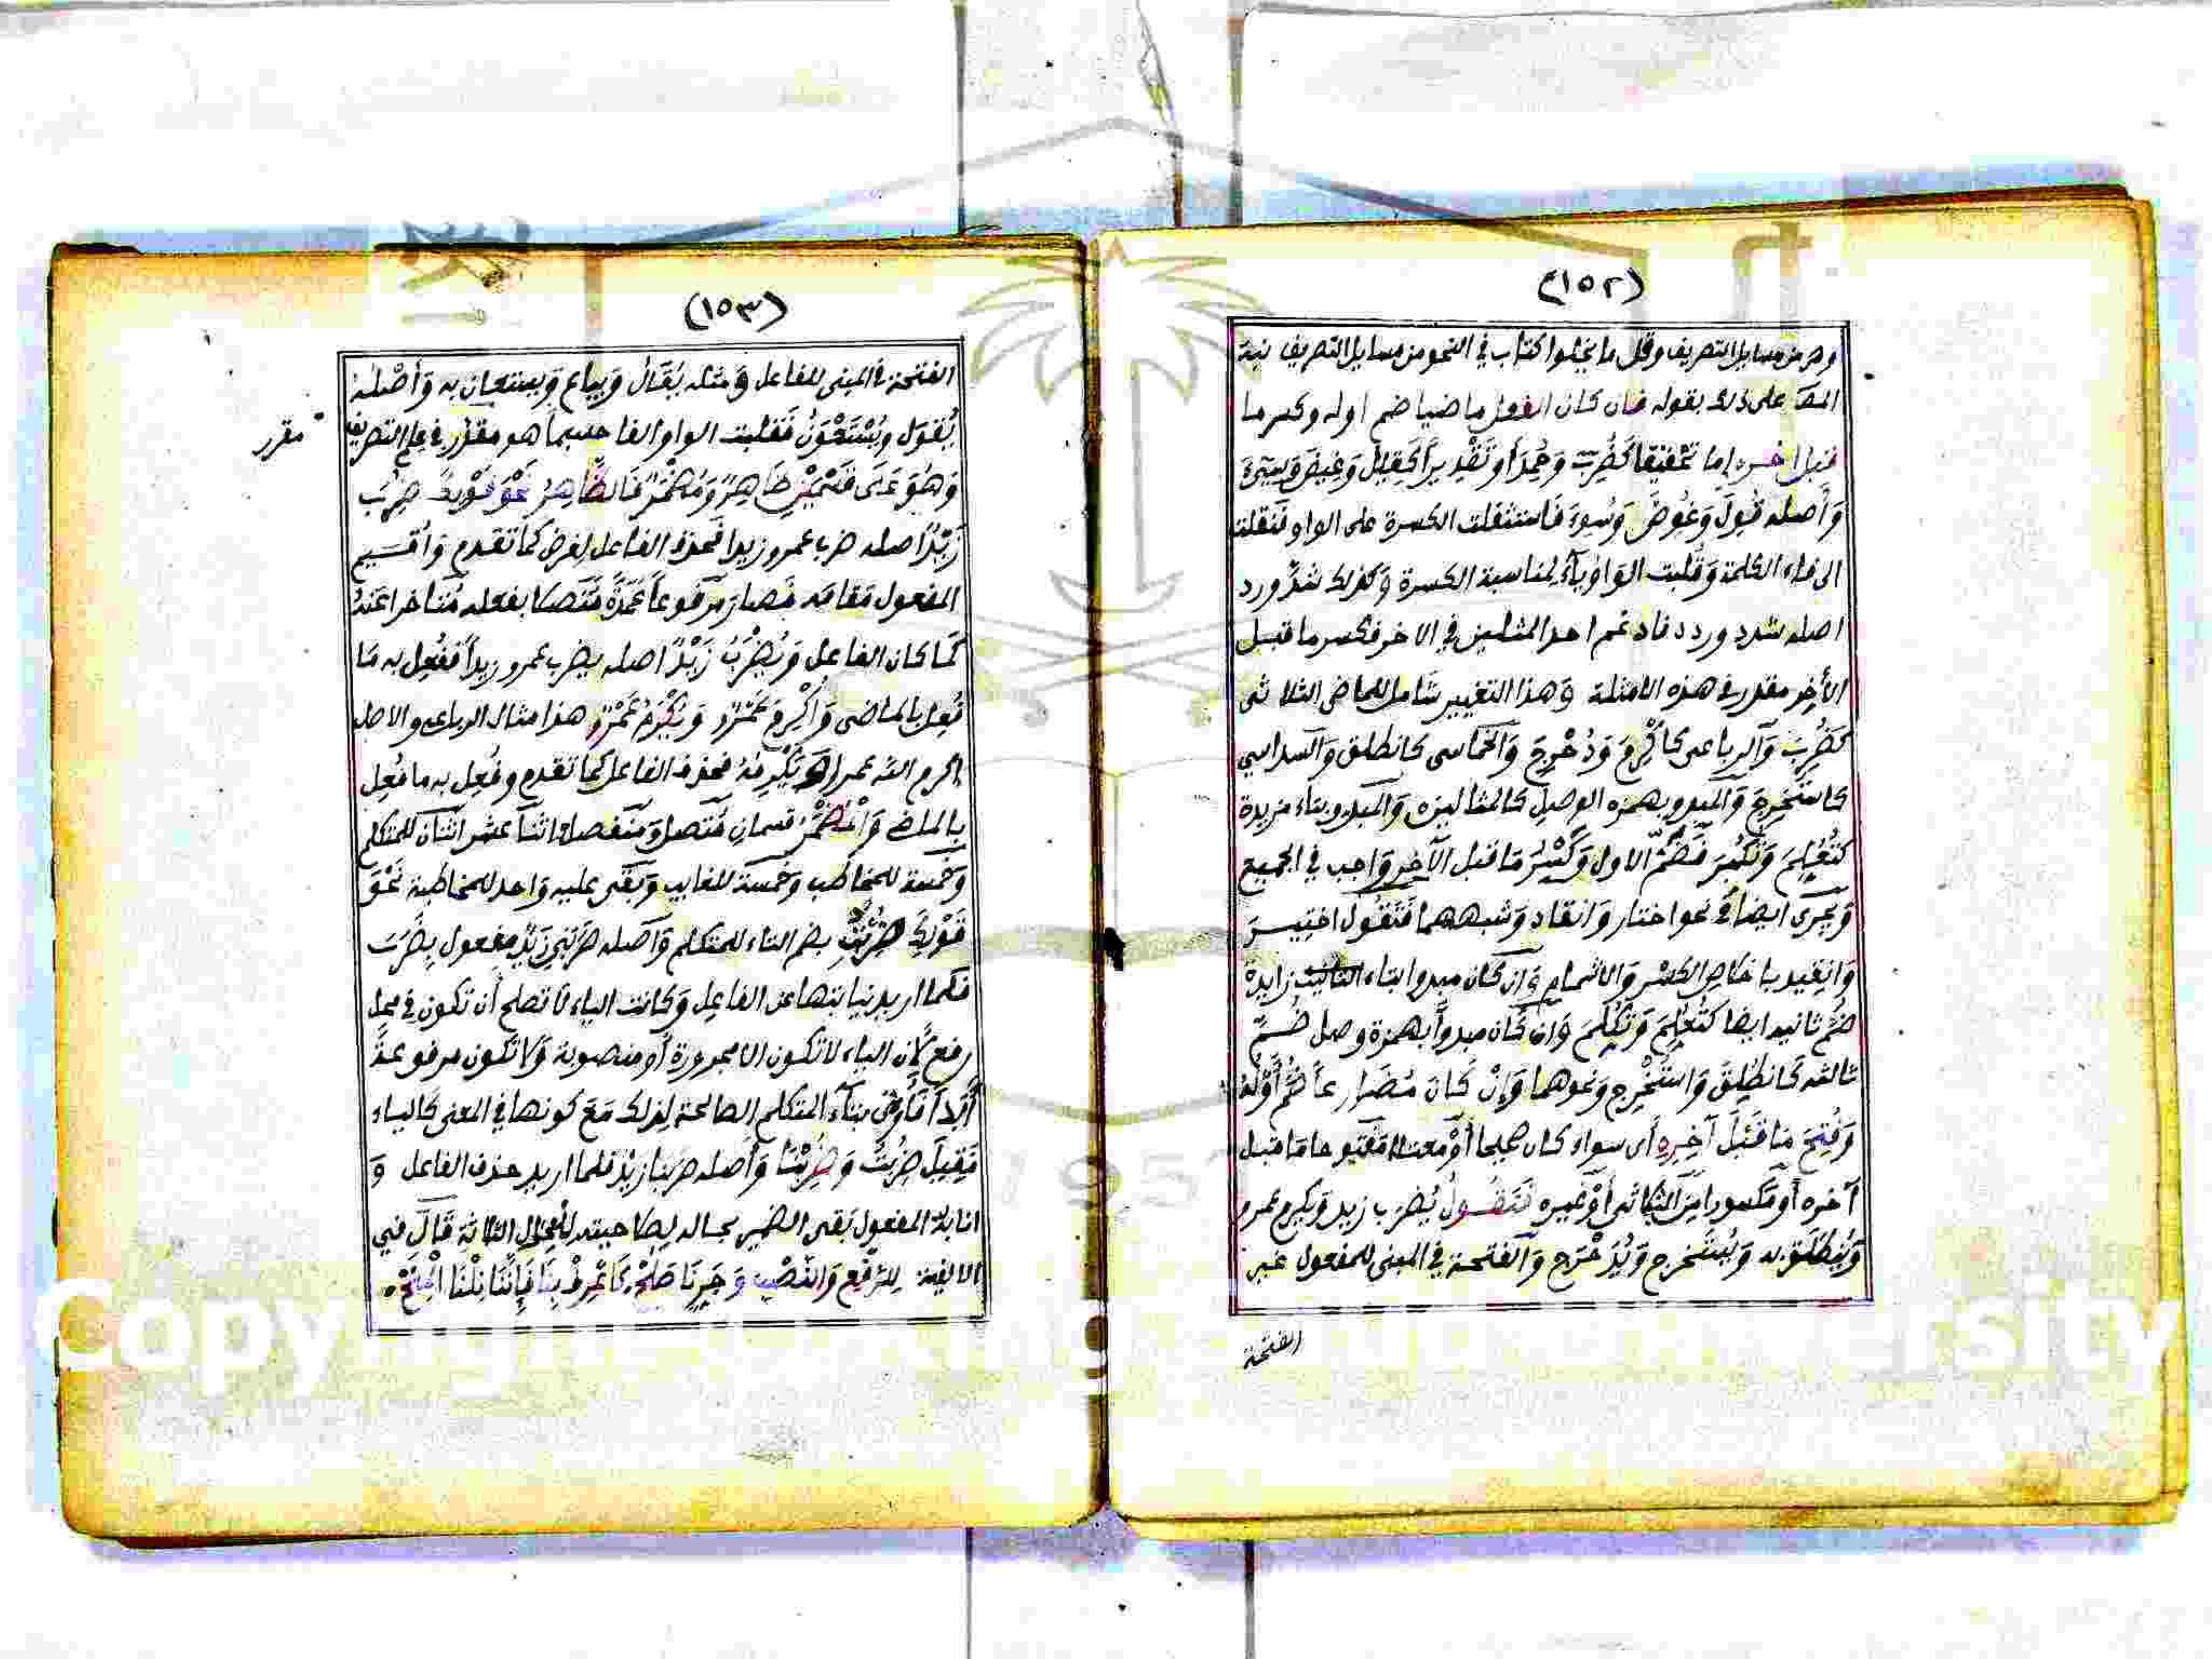 (١٥٢)
وهي من مسايل التصريف وقل ما يخلوا كتاب في النحو من مسايل التصريف نبه
المصـ على ذلك بقوله فان كان الفعل ماضيا ضم اوله وكسر ما
قبل اخره إما تحقيقا كَضُرِبَ وَحُمِدَ أو تقديراً كَقِيلَ وَغِيضَ وَسِيءَ
وَأصله قُوِلَ وَغُوِضَ وَسُوِءَ فَاستثقلت الكسرة على الواو فَنقلت
الى فاء الكلمة وَقُلبت الوَاوُ يآءً لمناسبة الكسرة وَكذلك شدَّ ورد
اصله شدد وردد فادغم احد المثلين في الاخر فكسر ما قبل
الأخِر مقدر في هذه الامثلة وَهذا التغيير شامل للماضى الثلاثى
كَضُرِبَ وَآلرباعى كأُكْرِمَ وَدُحْرِجَ وَالخماسى كانطلق وَالسداسي
كاستُخرِجَ وَالمبدو بهمزه الوصل كالمثالين وَالمبدو بتاء مزيدة
كتُعُلِمَ وَتُكُبِّرَ فَضَمُّ الاول وَكَسْرُ مَا قبل الآخِر وَاجب في الجميع
وَيجرى ايضا في نحو اختار وَانقاد وَشبههما فَتَقُول اختِيرَ
وَانقِيد باخلاص الكسْر وَالاشمام وَان كان مبدوا بتاء التانيث زايدة
ضُمَّ ثانيه ايضا كتُعُلِمَ وَتُكُلِّمَ وَان كَان مبدواً بهمزة وصل ضُمَّ
ثالثه كَانطُلِقَ وَاستُخْرِج وَنحوهما وَإِنْ كَانَ مُضَارِعاً ضُمَّ أَوَّلُهُ
وَفُتِحَ مَا قَبْلَ آخِرِهِ أى سواء كان صحيحا أوْ معتلا مفتوحا مَا قبل
آخره أو مكسورا مِنَ الثلاثى أوْ غيره فَتَقُولُ يُضرَب زيد وَيكرم عمرو
وَيُنطلَقُ به وَيُستَخرج وَيُدَحْرَج وَآلفتحة في المبنى للمفعول غير
الفتحة
(١٥٣)
الفتحة في المبنى للفاعل وَمثله يُقَالُ وَيباع وَيستعان به وَأصْلُهُ
يُقْوَل ويُسْتَعْوَنُ فَقلبت الواو الفا حسبما هو مقرر في علم التصريف
مقرر
وَهُوَ عَلَى قَسْمَيْنِ ظَاهِرٌ وَمُضْمَرٌ فَالظَّاهِرُ نَحْوُ قَوْلِكَ ضُرِبَ
زَيْدٌ اصله ضرب عمرو زيدا فحذف الفاعل لغرض كما تقدم وَاُقيم
المفعول مَقامَه فَصارَ مرفوعاً عُمْدَةً مُتَّصلا بفعله مُتأخرا عَنهُ
كَمَا كان الفاعل وَيُضْرَبُ زَيْدٌ اصله يضرب عمرو زيداً ففُعِل به مَا
فُعِل بالماضى وَأُكْرِمَ عَمْرٌو وَيُكْرَمُ عَمْرٌو هذا مثال الرباعى والاصل
اكرم الله عمرا وَيُكْرِمُهُ فحذف الفاعل كما تقدم وفُعِل به ما فُعِل
بالماضى وَالْمُضْمَرُ قسمانِ مُتصل وَمنفصل اثنآ عشر اثنان للمتكلم
وَخَمسة للمخاطب وَخمسة للغايب وَبَقى عليه وَاحد للمخاطبة نَحْوَ
قَوْلِكَ ضُرِبْتُ بضم التاء للمتكلم وَآصله ضَرَبَنِي زَيْدٌ مفعول بِضَرَبَ
فَلما اريد نيابتها عن الفاعِلِ وَكانت الياء لَا تصلح أَن تكون في محل
رفع لِأنَ الياء لا تكون الا مجرورة أو منصوبة وَلا تكون مرفوعة
أَبَداً فَأتى بتآء المتكلم الصالحة لِذلك مَعَ كونها في المعنى كَالياء
فَقِيلَ ضُرِبْتُ وَضُرِبْنَا وَأصله ضرَبنا زيدٌ فلما اريد حذف الفاعل وَ
انابة المفعول بَقى الضمير بحاله لِصلاحيته لِلأَحْوَال الثلاثة قَالَ في
الالفية لِلرَّفعِ وَالنَّصْبِ وَجَرٍّ نَا صَلُحْ كَاعْرِفْ بِنَا فَإِنَّنَا نِلْنَا الْمِنَحْ